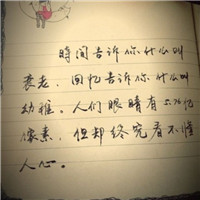 时间告诉你什么叫
衰老，回忆告诉你什么叫
幼稚。人们眼睛有5.76亿
像素，但却终究看不懂
人心。